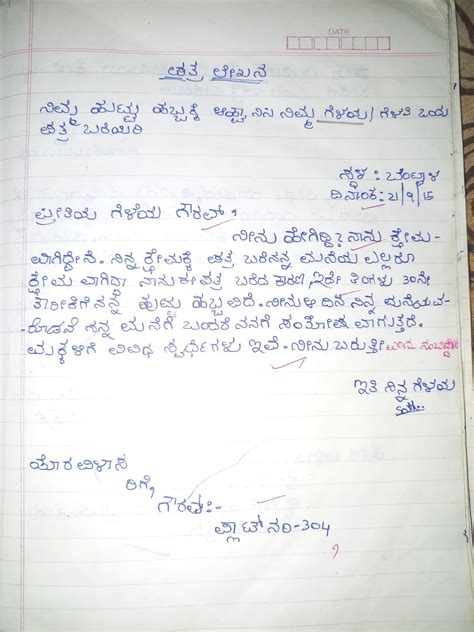 DATE
ಪತ್ರ ಲೇಖನ
ನಿಮ್ಮ ಹುಟ್ಟು ಹಬ್ಬಕ್ಕೆ ಆಹ್ವಾನಿಸಿ ನಿಮ್ಮ ಗೆಳೆಯ/ಗೆಳತಿ ಒಂದು
ಪತ್ರ ಬರೆಯಿರಿ
ಸ್ಥಳ: ಬೆಂಟ್ವಳ
ದಿನಾಂಕ: 21/9/15
ಪ್ರೀತಿಯ ಗೆಳೆಯ ಗೌರವ್,
ನೀನು ಹೇಗಿದ್ದಿ? ನಾನು ಕ್ಷೇಮ-
ವಾಗಿದ್ದೇನೆ. ನಿನ್ನ ಕ್ಷೇಮಕ್ಕೆ ಪತ್ರ ಬರೆ ನನ್ನ ಮನೆಯ ಎಲ್ಲರೂ
ಕ್ಷೇಮ ವಾಗಿದ್ದಾ ನಾನು ಈ ಪತ್ರ ಬರೆದ ಕಾರಣ, ಇದೇ ತಿಂಗಳು 30ನೇ
ತಾರೀಕಿಗೆ ನನ್ನ ಹುಟ್ಟು ಹಬ್ಬವಿದೆ. ನೀನು ಆ ದಿನ ನಿನ್ನ ಮನೆಯವ-
ರೊಡನೆ ನನ್ನ ಮನೆಗೆ ಬಂದರೆ ನನಗೆ ಸಂತೋಷ ವಾಗುತ್ತದೆ.
ಮಕ್ಕಳಿಗೆ ವಿವಿಧ ಸ್ಪರ್ಧೆಗಳು ಇವೆ. ನೀನು ಬರುತ್ತೀ
ಇತಿ ನಿನ್ನ ಗೆಳೆಯ
ಹೊರ ವಿಳಾಸ
ರಿಗೆ,
ಗೌರವ್:-
ಪ್ಲಾಟ್ ನಂ-304